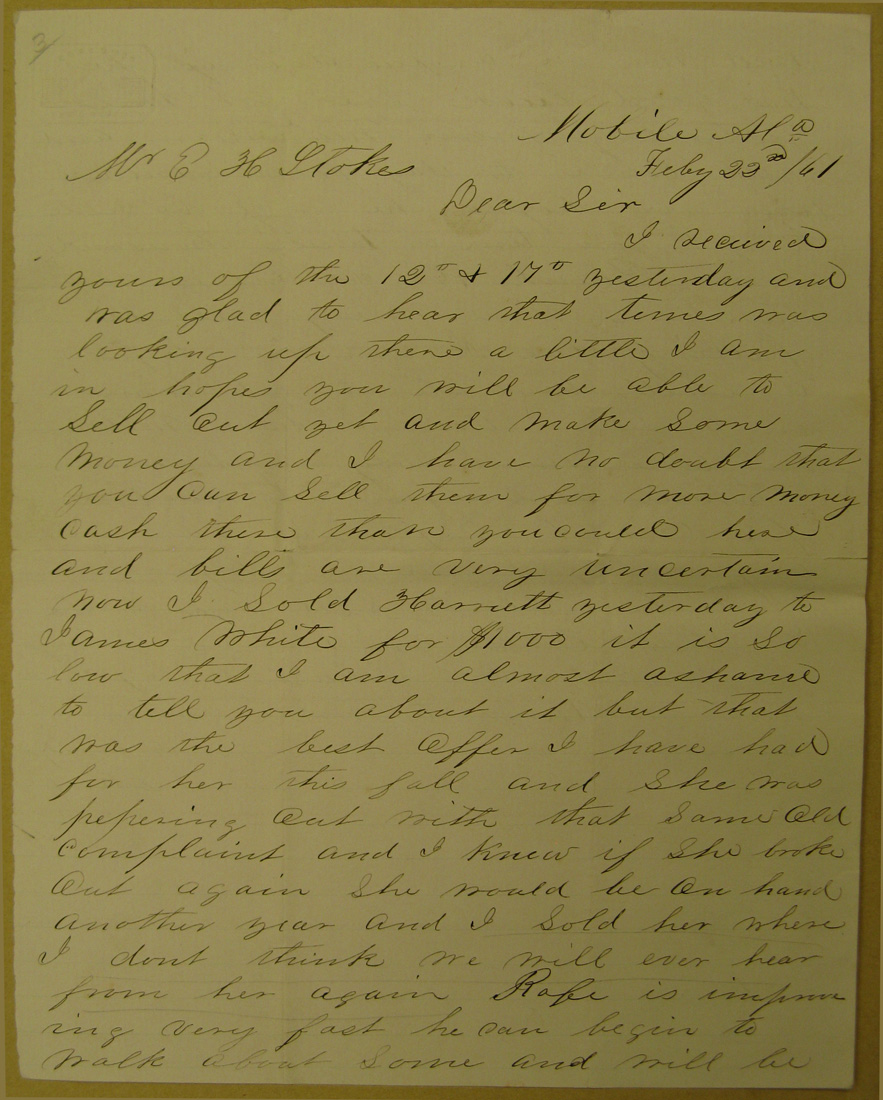 3
Mobile Ala
Mr E H Stokes Feby 22d/61
Dear Sir
I recieved
yours of the 12" & 17" yesterday and
was glad to hear that times was
looking up there a little I am
in hopes you will be able to
Sell out yet and make some
money and I have no doubt that
you can sell them for more money
cash there than you could here
and bills are very uncertain
now I Sold Harriett yesterday to
James White for $1000 it is so
low that I am almost ashame
to tell you about it but that
was the best offer I have had
for her this fall and she was
pepering out with that same old
complaint and I knew if she broke
out again she would be on hand
another year and I sold her where
I dont think we will ever hear
from her again Rafe is improv
ing very fast he can begin to
walk about some and will be